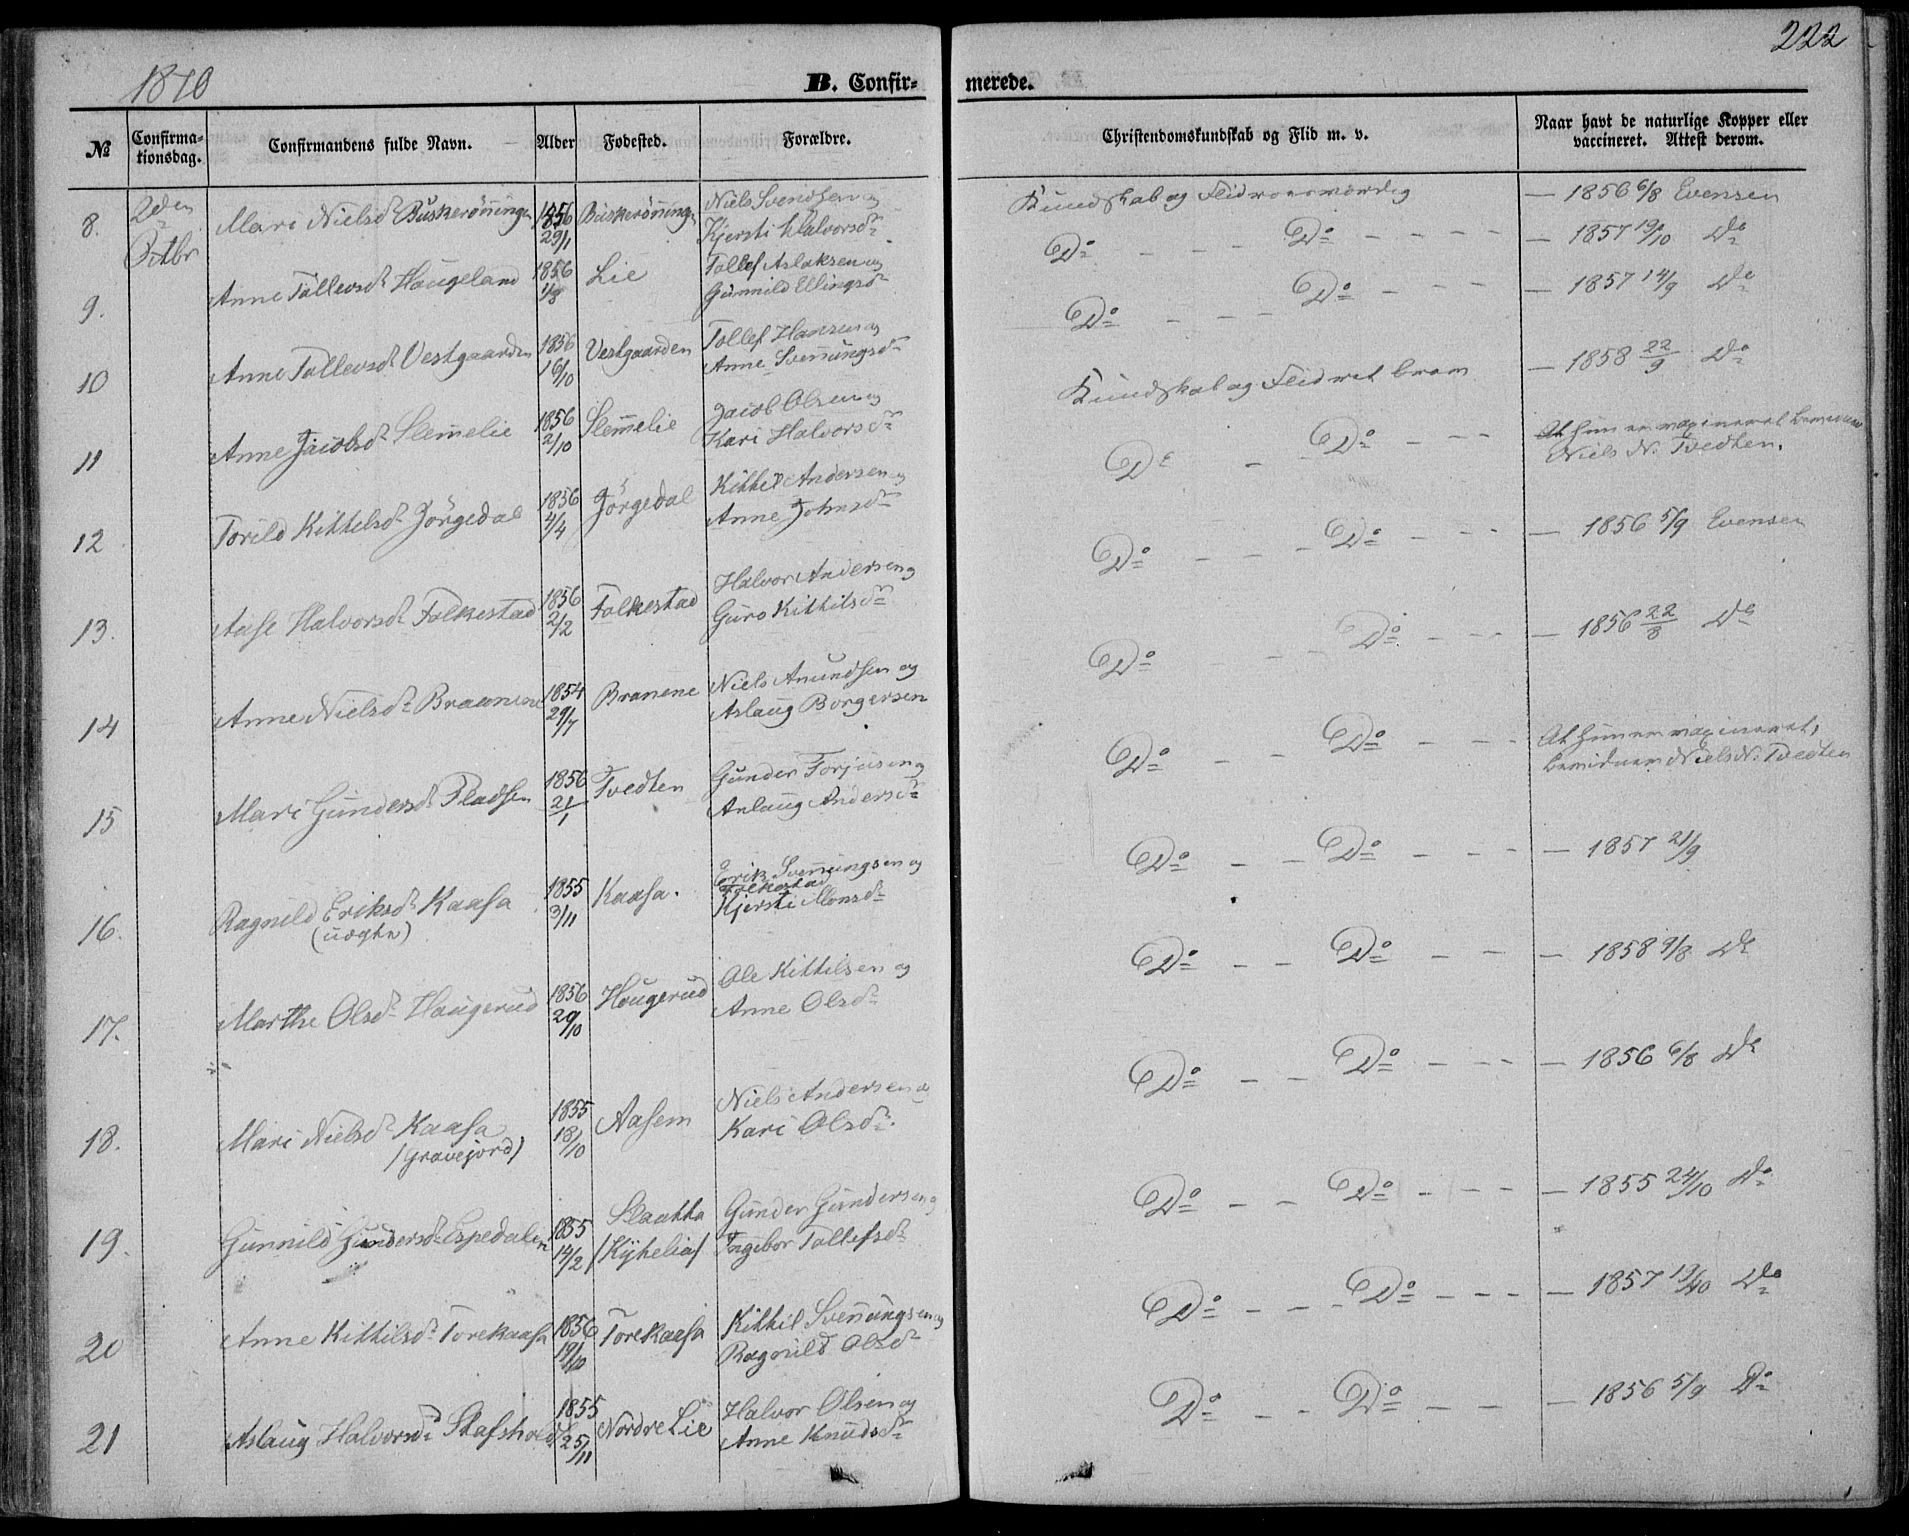 222
1870
B. Confir- merede.
№ Confirma-tionsdag. Confirmandens fulde Navn. Alder Fødested. Forældre. Christendomskundskab og Flid m. v. Naar havt de naturlige Kopper eller vaccineret. Attest derom.
8. 2den Octbr Mari Nielsd. Buskerönningen 1856 29/1 Buskerönningen Niels Svendsen og Kundskab og Flid roesværdig — 1856 6/8 Evensen
Kjersti Halvorsd.
9. Anne Tollevsd. Haugeland 1856 1/8 Lie Tollef Aslaksen og Do — — Do — — — — 1857 19/10 Do
Gunnild Ellingsd.
10 Anne Tollevsd. Vestgaarden 1856 16/10 Vestgaarden Tollef Hansen og Do — — — Do — — — — 1857 14/9 Do
Anne Svenungsd.
11 Anne Jacobsd. Slemmelie 1856 2/10 Slemmelie Jacob Olsen og Kundskab og Flid ret brav — 1858 22/9 Do
Kari Halvorsd.
12 Torild Kittilsd. Jörgedal 1856 4/4 Jörgedal Kittil Andersen og Do — — Do — — — At hun er vaxineret bevidner
Anne Johnsd. Niels N. Tvedten.
13. Aase Halvorsd. Folkestad 1856 2/2 Folkestad Halvor Andersen og Do — — — Do — — — — 1856 5/9 Evensen
Guro Kittilsd.
14 Anne Nielsd. Braanene 1854 29/7 Branene Niels Amundsen og Do — — — Do — — — — 1856 22/8 Do
Aslaug Borgersen
15 Mari Gundersd. Pladsen 1856 21/1 Tvedten Gunder Torjusen og Do — — Do — — — At hun er vaxineret,
Anlaug Andersd. bevidner Niels N. Tvedten
16. Ragnild Eriksd. Kaasa 1855 3/11 Kaasa. Erik Svenungsen og Do — — Do — — — — 1857 21/9
(uægte) Folkestad
Kjersti Monsd.
17. Marthe Olsd. Haugerud 1856 29/10 Hougerud Ole Kittilsen og Do — — Do — — — 1858 9/8 Do
Anne Olsd.
18. Mari Nielsd. Kaasa 1855 18/10 Aasem Niels Andersen og Do — — Do — — — — 1856 6/8 Do
/Gravejord/ Kari Olsd.
19. Gunnild Gundersd. Espedalen 1855 14/2 Slaatta Gunder Gundersen og Do — — Do — — — — 1855 24/10 Do
/Kyhelia/ Ingebor Tollefsd.
20 Anne Kittilsd. Torekaasa 1856 19/10 Torekaasa Kittil Svenungsen og Do — — — Do — — — — 1857 19/10 Do
Ragnild Olsd.
21 Aslaug Halvorsd. 1855 25/11 Nordre Lie Halvor Olsen og Do — — Do — — — 1856 5/9 Do
Anne Knudsd.